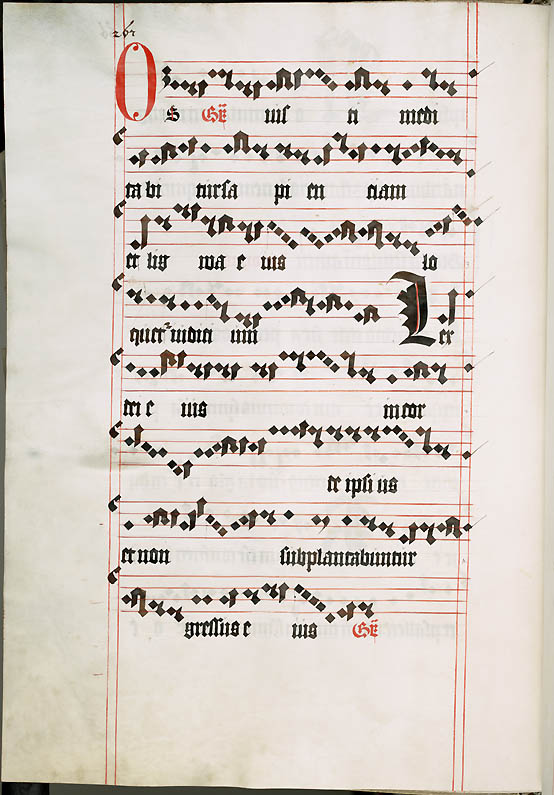 OS Gr ius ti medi
ta bi tur sa pi en ciam
et lig wa e ius lo
quet iudici um Lex
dei e ius in cor
de ipsi us
et non subplantabuntur
gressus e ius Gr